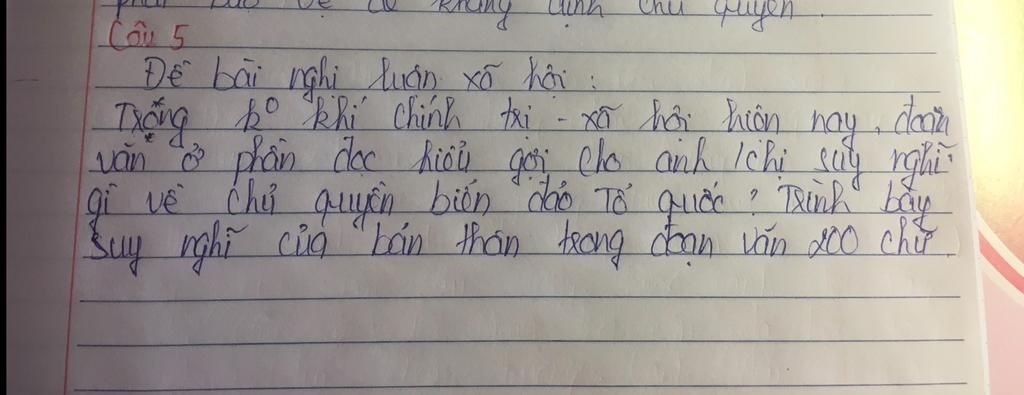 phải bảo vệ và khẳng định chủ quyền.
Câu 5
Đề bài nghị luận xã hội:
Trong k⁰ khí chính trị - xã hội hiện nay, đoạn
văn ở phần đọc hiểu gợi cho anh/chị suy nghĩ
gì về chủ quyền biển đảo Tổ quốc? Trình bày
suy nghĩ của bản thân trong đoạn văn 200 chữ.